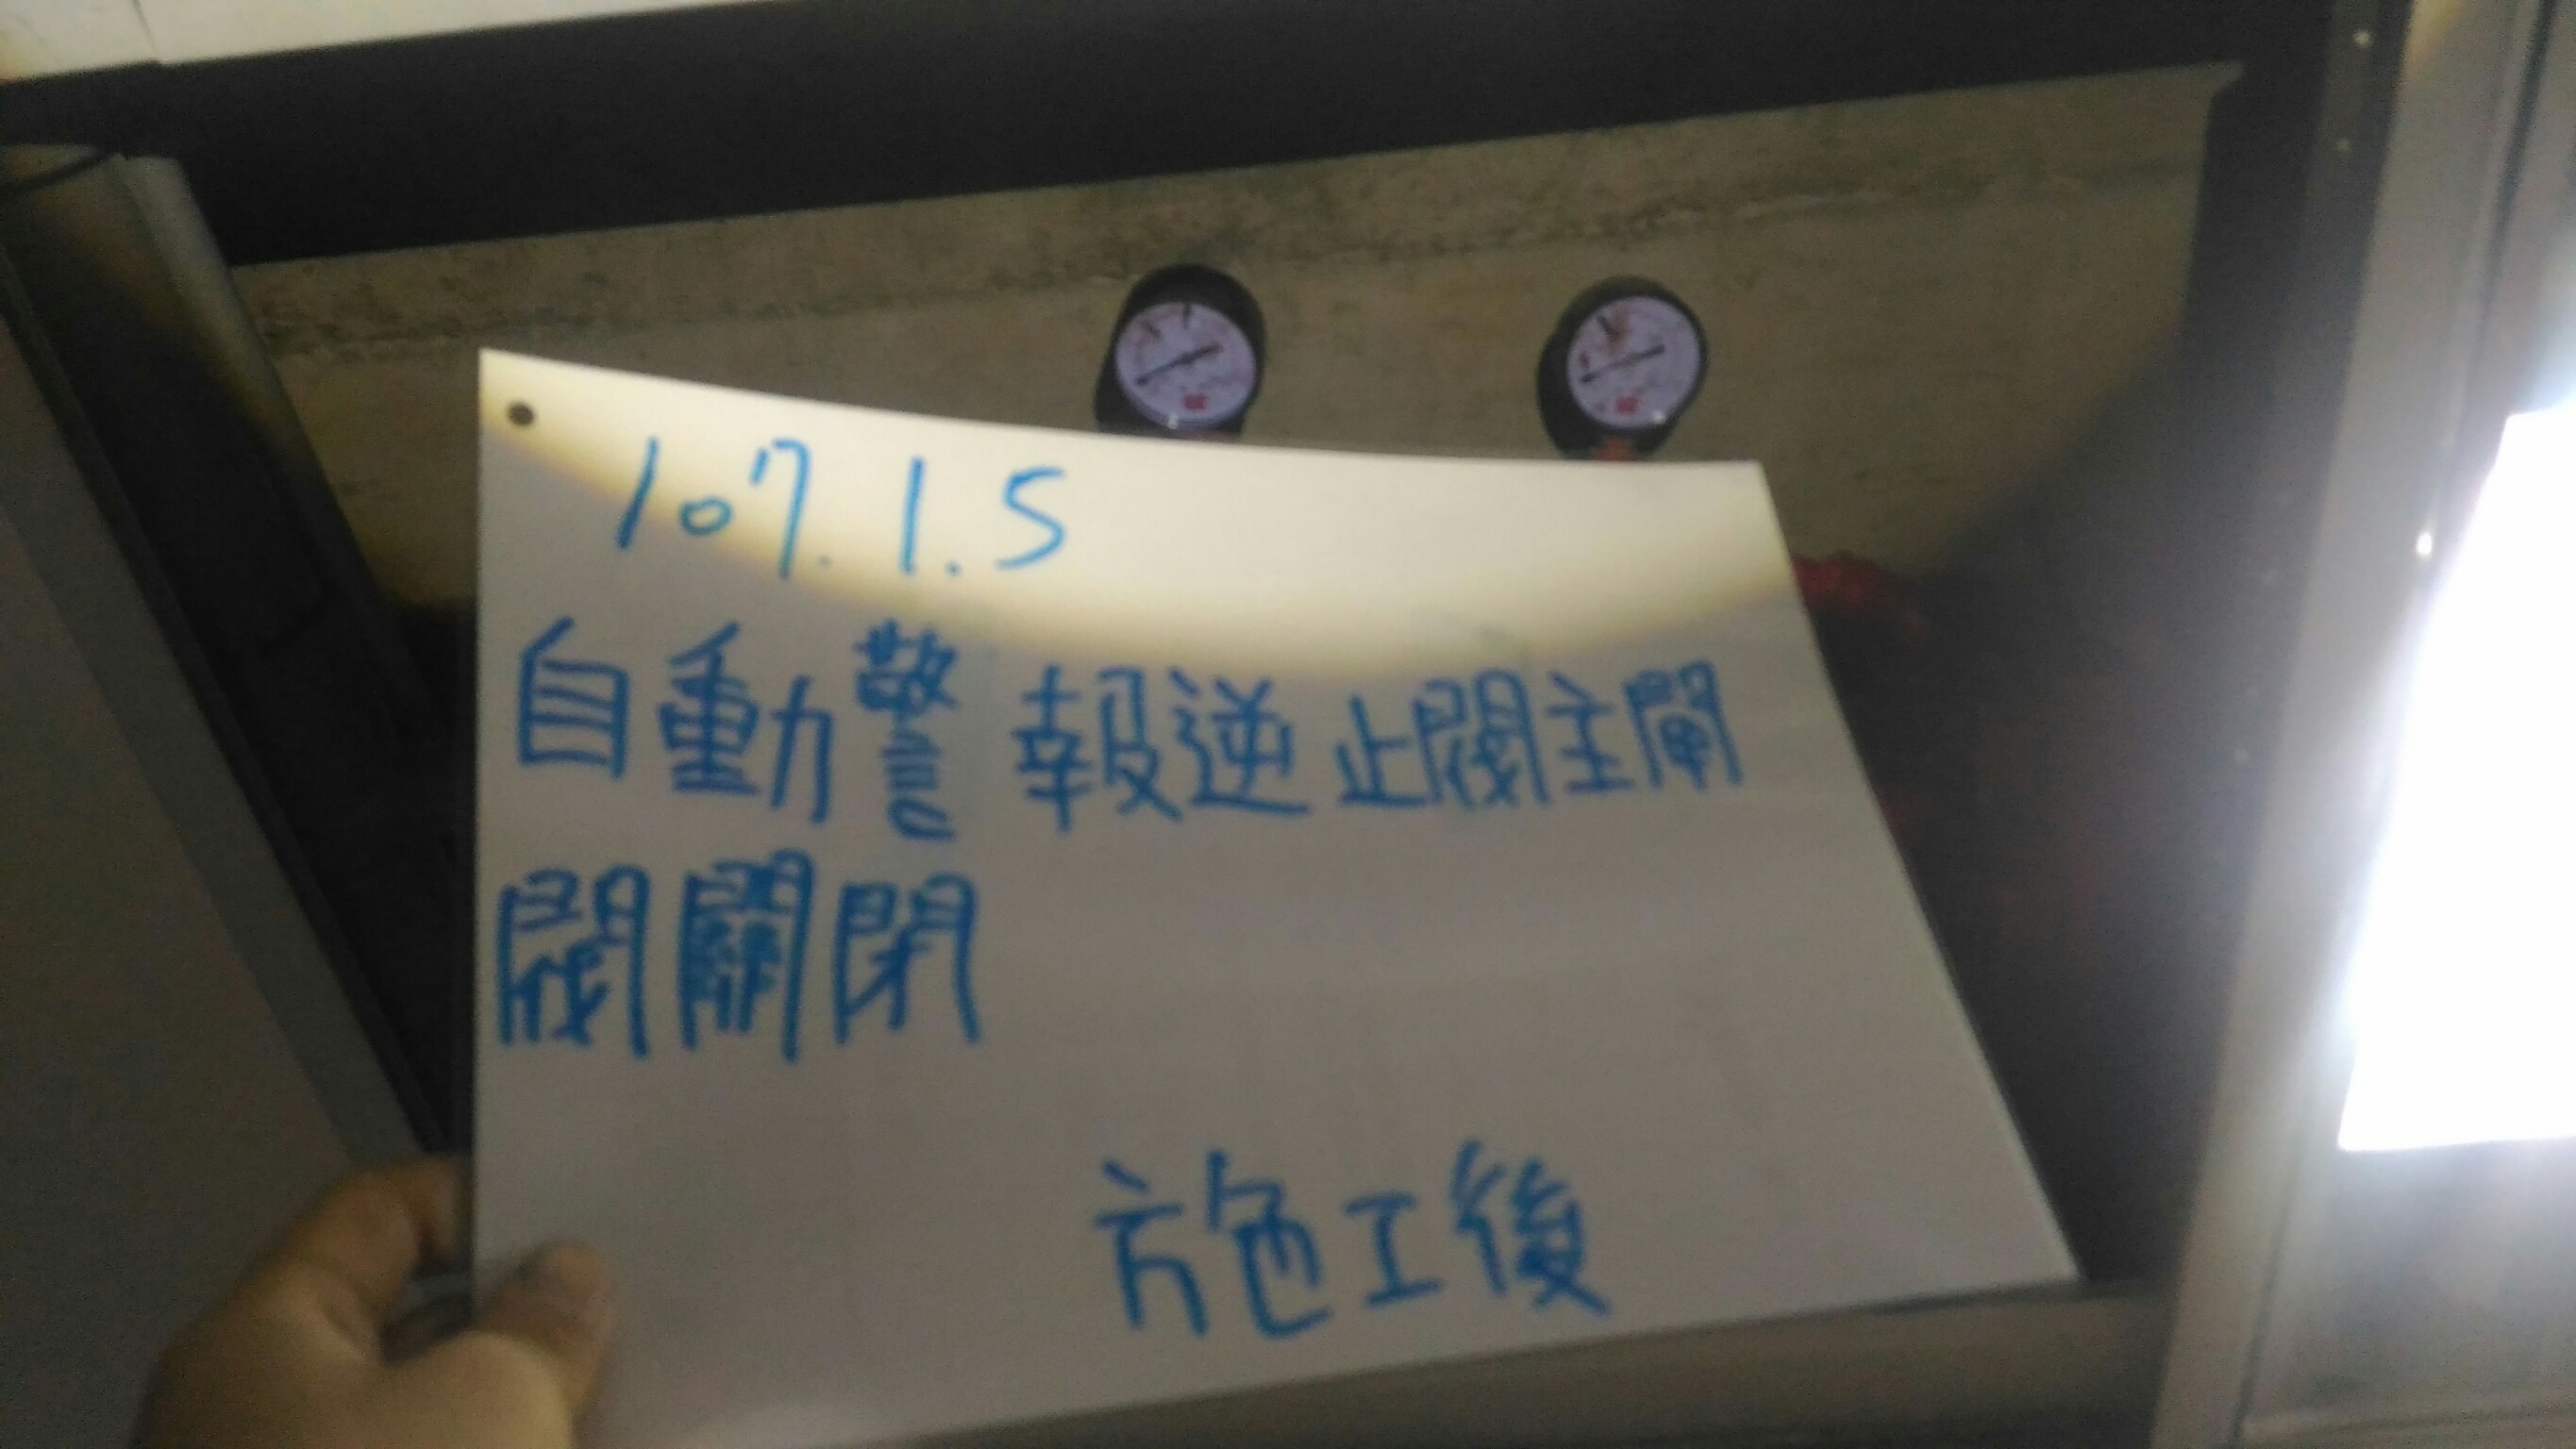 107.1.5
自動警報逆止閥主閘
閥關閉
施工後